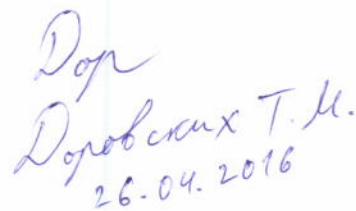 Дор
Доровских Т.М.
26.04.2016